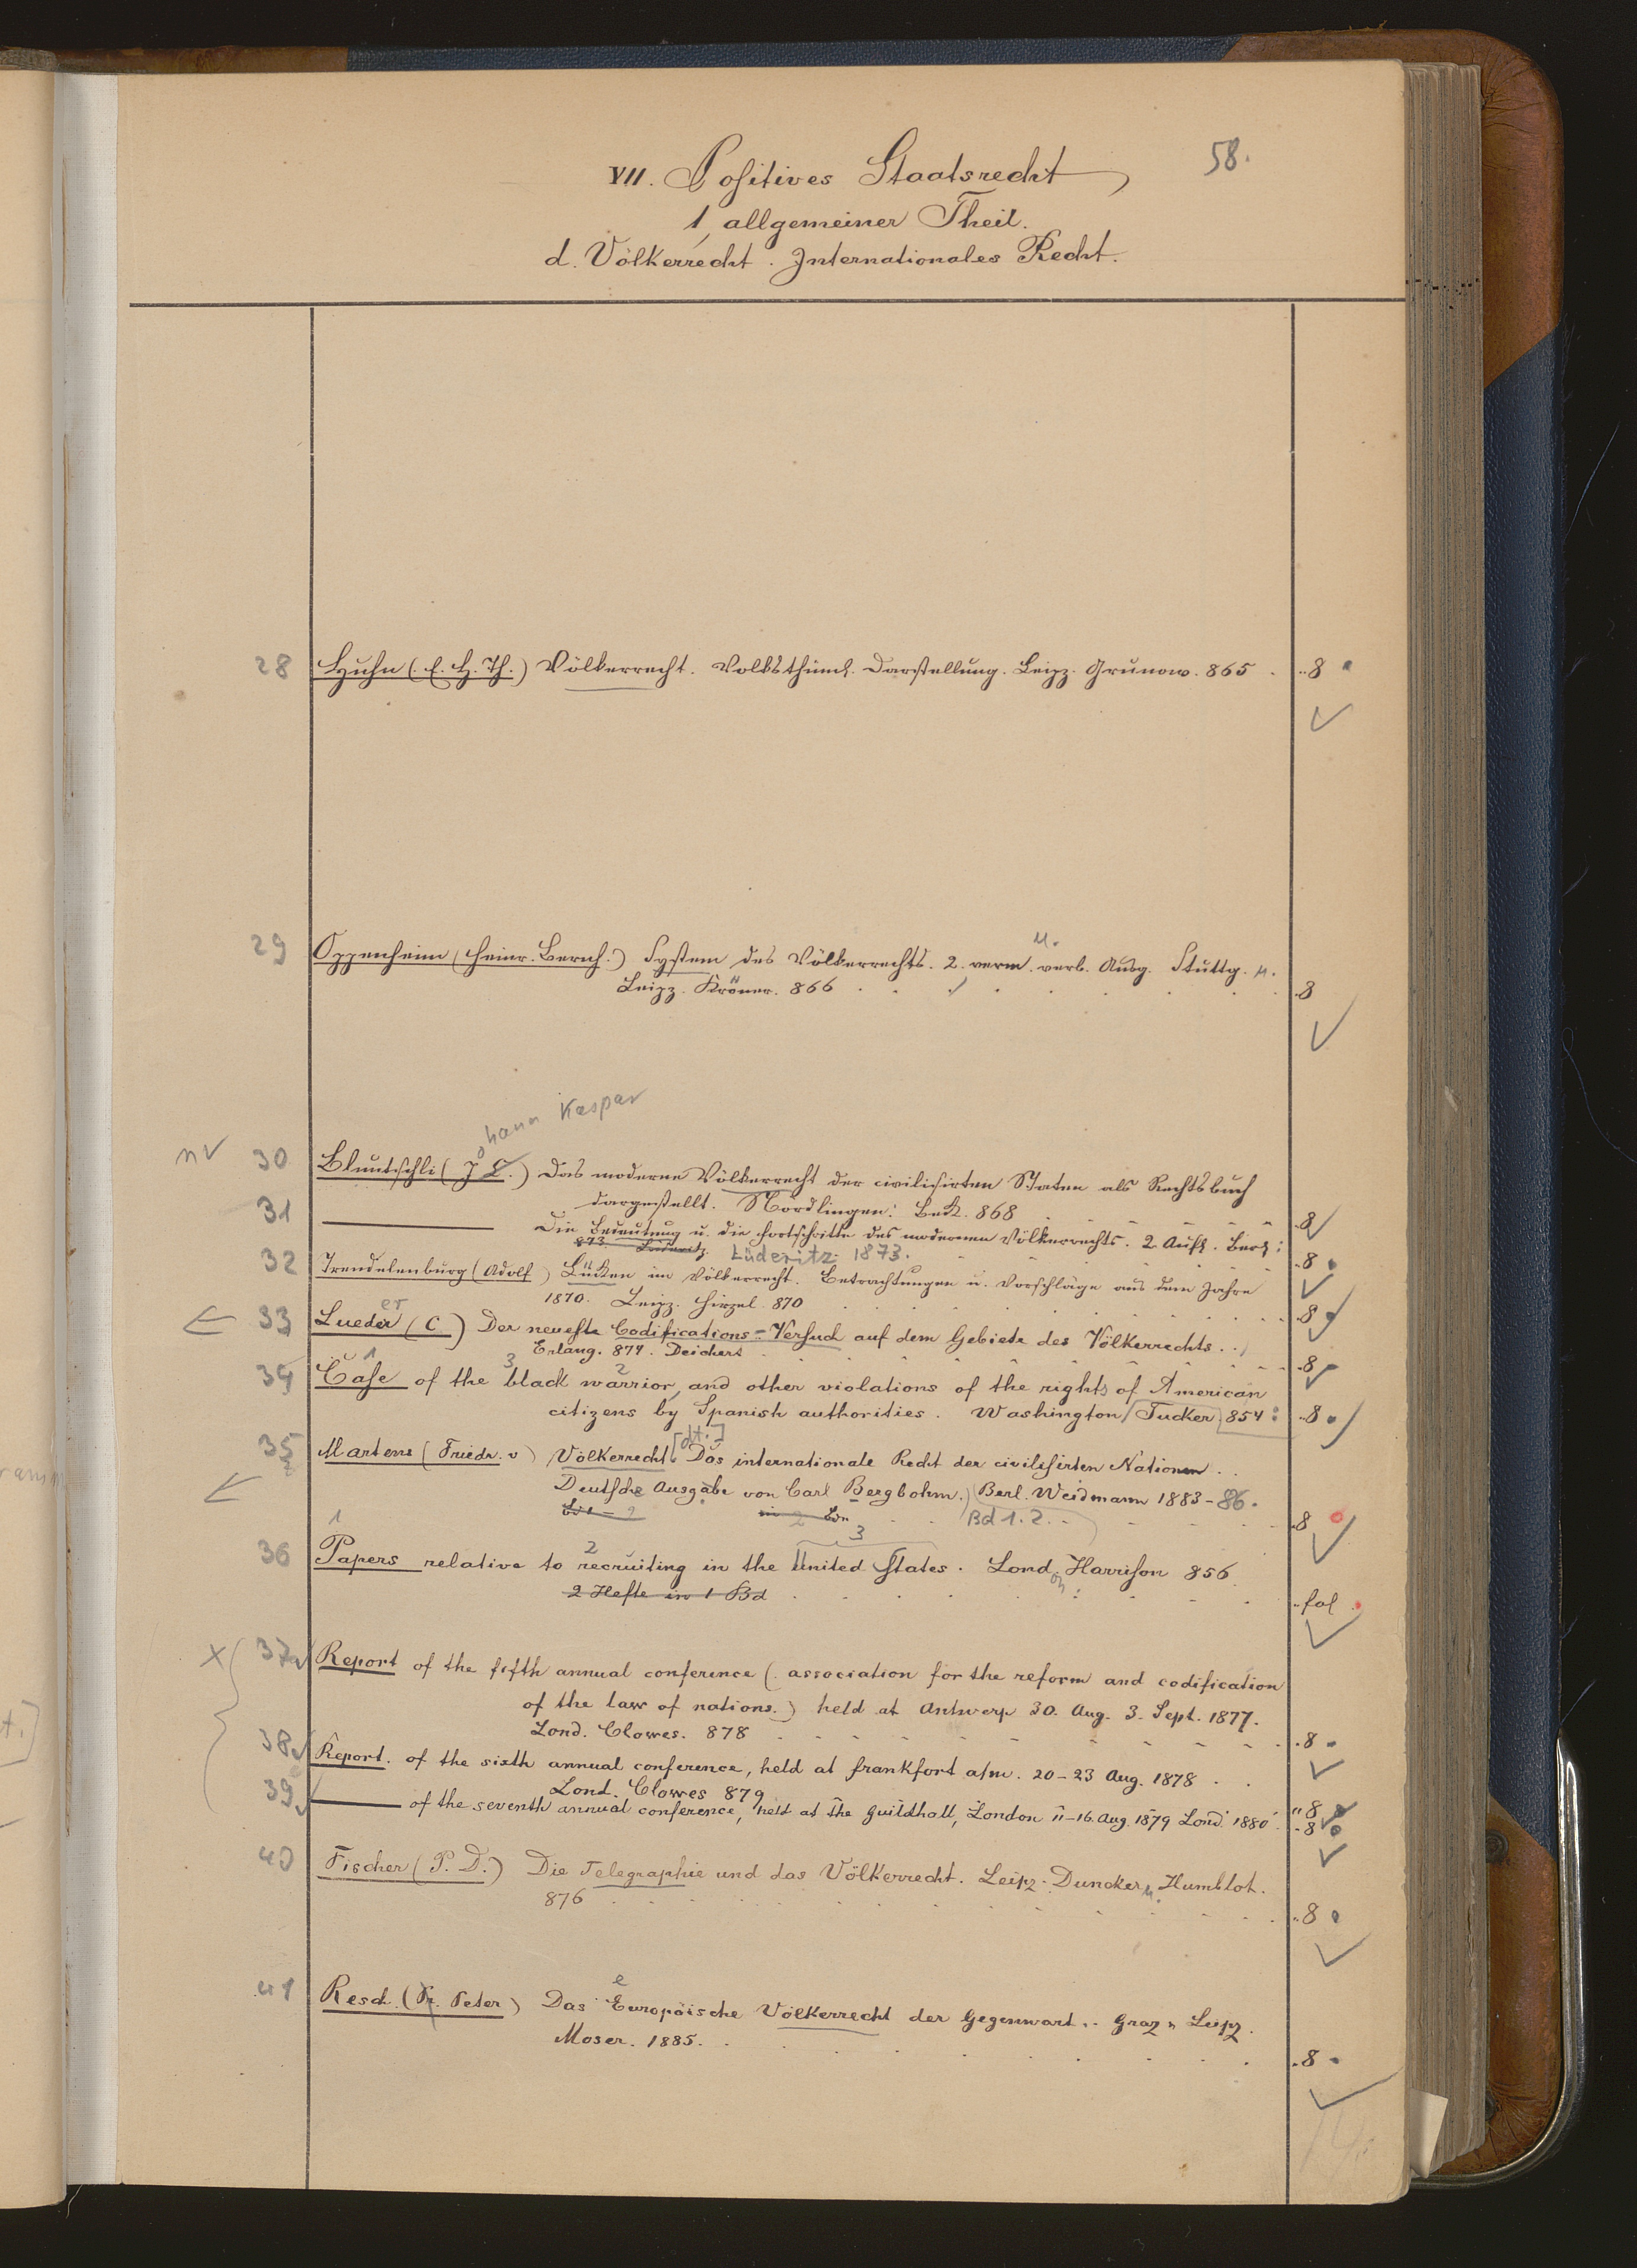 58.
VII. Positives Staatsrecht
1, allgemeiner Theil.
d. Völkerrecht. Internationales Recht.
28 Huhn (E. H. Th.) Völkerrecht. Volksthüml. Darstellung. Leipz. Grunow. 865 . 8
29 Oppenheim (Heinr. Bernh.) System des Völkerrechts. 2. verm. u. verb. Ausg. Stuttg. u.
Leipz. Kröner. 866 . 8
ohann Kaspar
nv 30 Bluntschli (J C.) Das moderne Völkerrecht der civilisirten Staten als Rechtsbuch
dargestellt. Nördlingen: Beck. 868 8
31 ——— Die Bedeutung u. die Fortschritte des modernen Völkerrechts. 2. Aufl. Berl:
873. Luderitz. Lüderitz 1873. 8
32 Trendelenburg (Adolf) Lücken im Völkerrecht. Betrachtungen u. Vorschläge aus dem Jahre
1870. Leipz. Hirzel. 870 8
33 Lueder (C) Der neueste Codifications-Versuch auf dem Gebiete des Völkerrechts. .
Erlang. 874. Deichert 8
34 Case of the black warrior, and other violations of the rights of American
citizens by Spanish authorities. Washington Tucker 854: 8
35 Martens (Friedr. v) Völkerrecht. [dt.] Das internationale Recht der civilisirten Nationen.
Deutsche Ausgabe von Carl Bergbohm. Berl. Weidmann 1883-86.
Bd 1.2. 8
36 Papers relative to recruiting in the United States. London Harrison 856.
2 Hefte in 1 Bd fol
37 Report of the fifth annual conference (association for the reform and codification
of the law of nations.) held at Antwerp 30. Aug. 3. Sept. 1877.
Lond. Clowes. 878 8
38 Report. of the sixth annual conference, held at Frankfort a/m. 20-23 Aug. 1878 . .
Lond. Clowes 879 8
39 ——— of the seventh annual conference, held at the guildhall, London 11-16. Aug. 1879 Lond. 1880. 8
40 Fischer (P. D.) Die Telegraphie und das Völkerrecht. Leipz. Duncker u. Humblot.
876 8
41 Resch (Dr. Peter) Das Europäische Völkerrecht der Gegenwart. Graz u Leipz.
Moser. 1885. 8